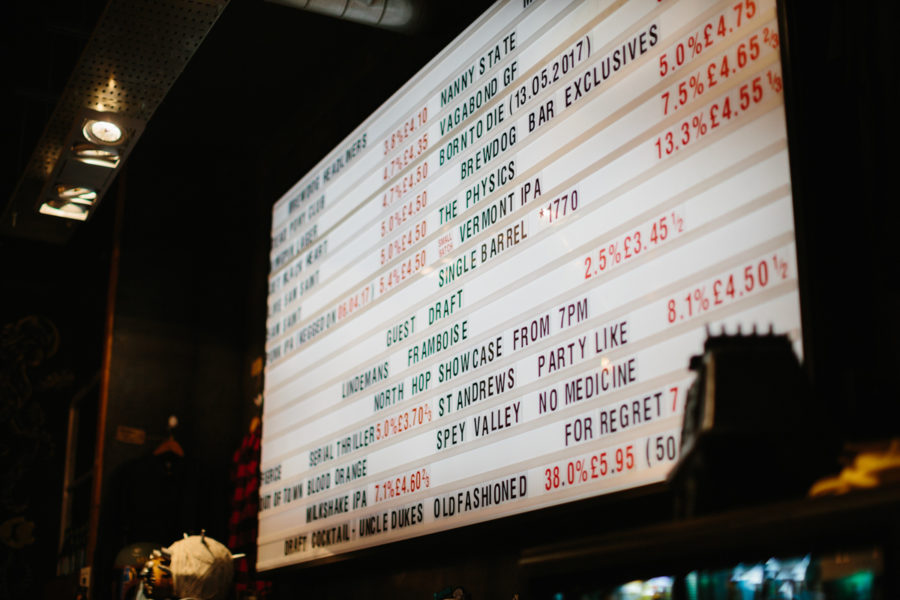 BREWDOG HEADLINERS
PONY CLUB 3.8%£4.10
LAGER 4.7%£4.35
HEART 4.7%£4.50
SAN SAINT 5.0%£4.50
SAINT 5.0%£4.50
IPA (KEGGED ON 06.04.17) 5.4%£4.50
NANNY STATE
VAGABOND GF
BORN TO DIE (13.05.2017)
BREWDOG BAR EXCLUSIVES
THE PHYSICS 5.0%£4.75
SMALL BATCH VERMONT IPA 7.5%£4.65 2/3
SINGLE BARREL *1770 13.3%£4.55 1/3
GUEST DRAFT
LINDEMANS FRAMBOISE 2.5%£3.45 1/2
NORTH HOP SHOWCASE FROM 7PM
SERIAL THRILLER 5.0%£3.70 2/3 ST ANDREWS PARTY LIKE 8.1%£4.50 1/2
OUT OF TOWN BLOOD ORANGE SPEY VALLEY NO MEDICINE
MILKSHAKE IPA 7.1%£4.60 2/3 FOR REGRET 7
DRAFT COCKTAIL - UNCLE DUKES OLDFASHIONED 38.0%£5.95 (50